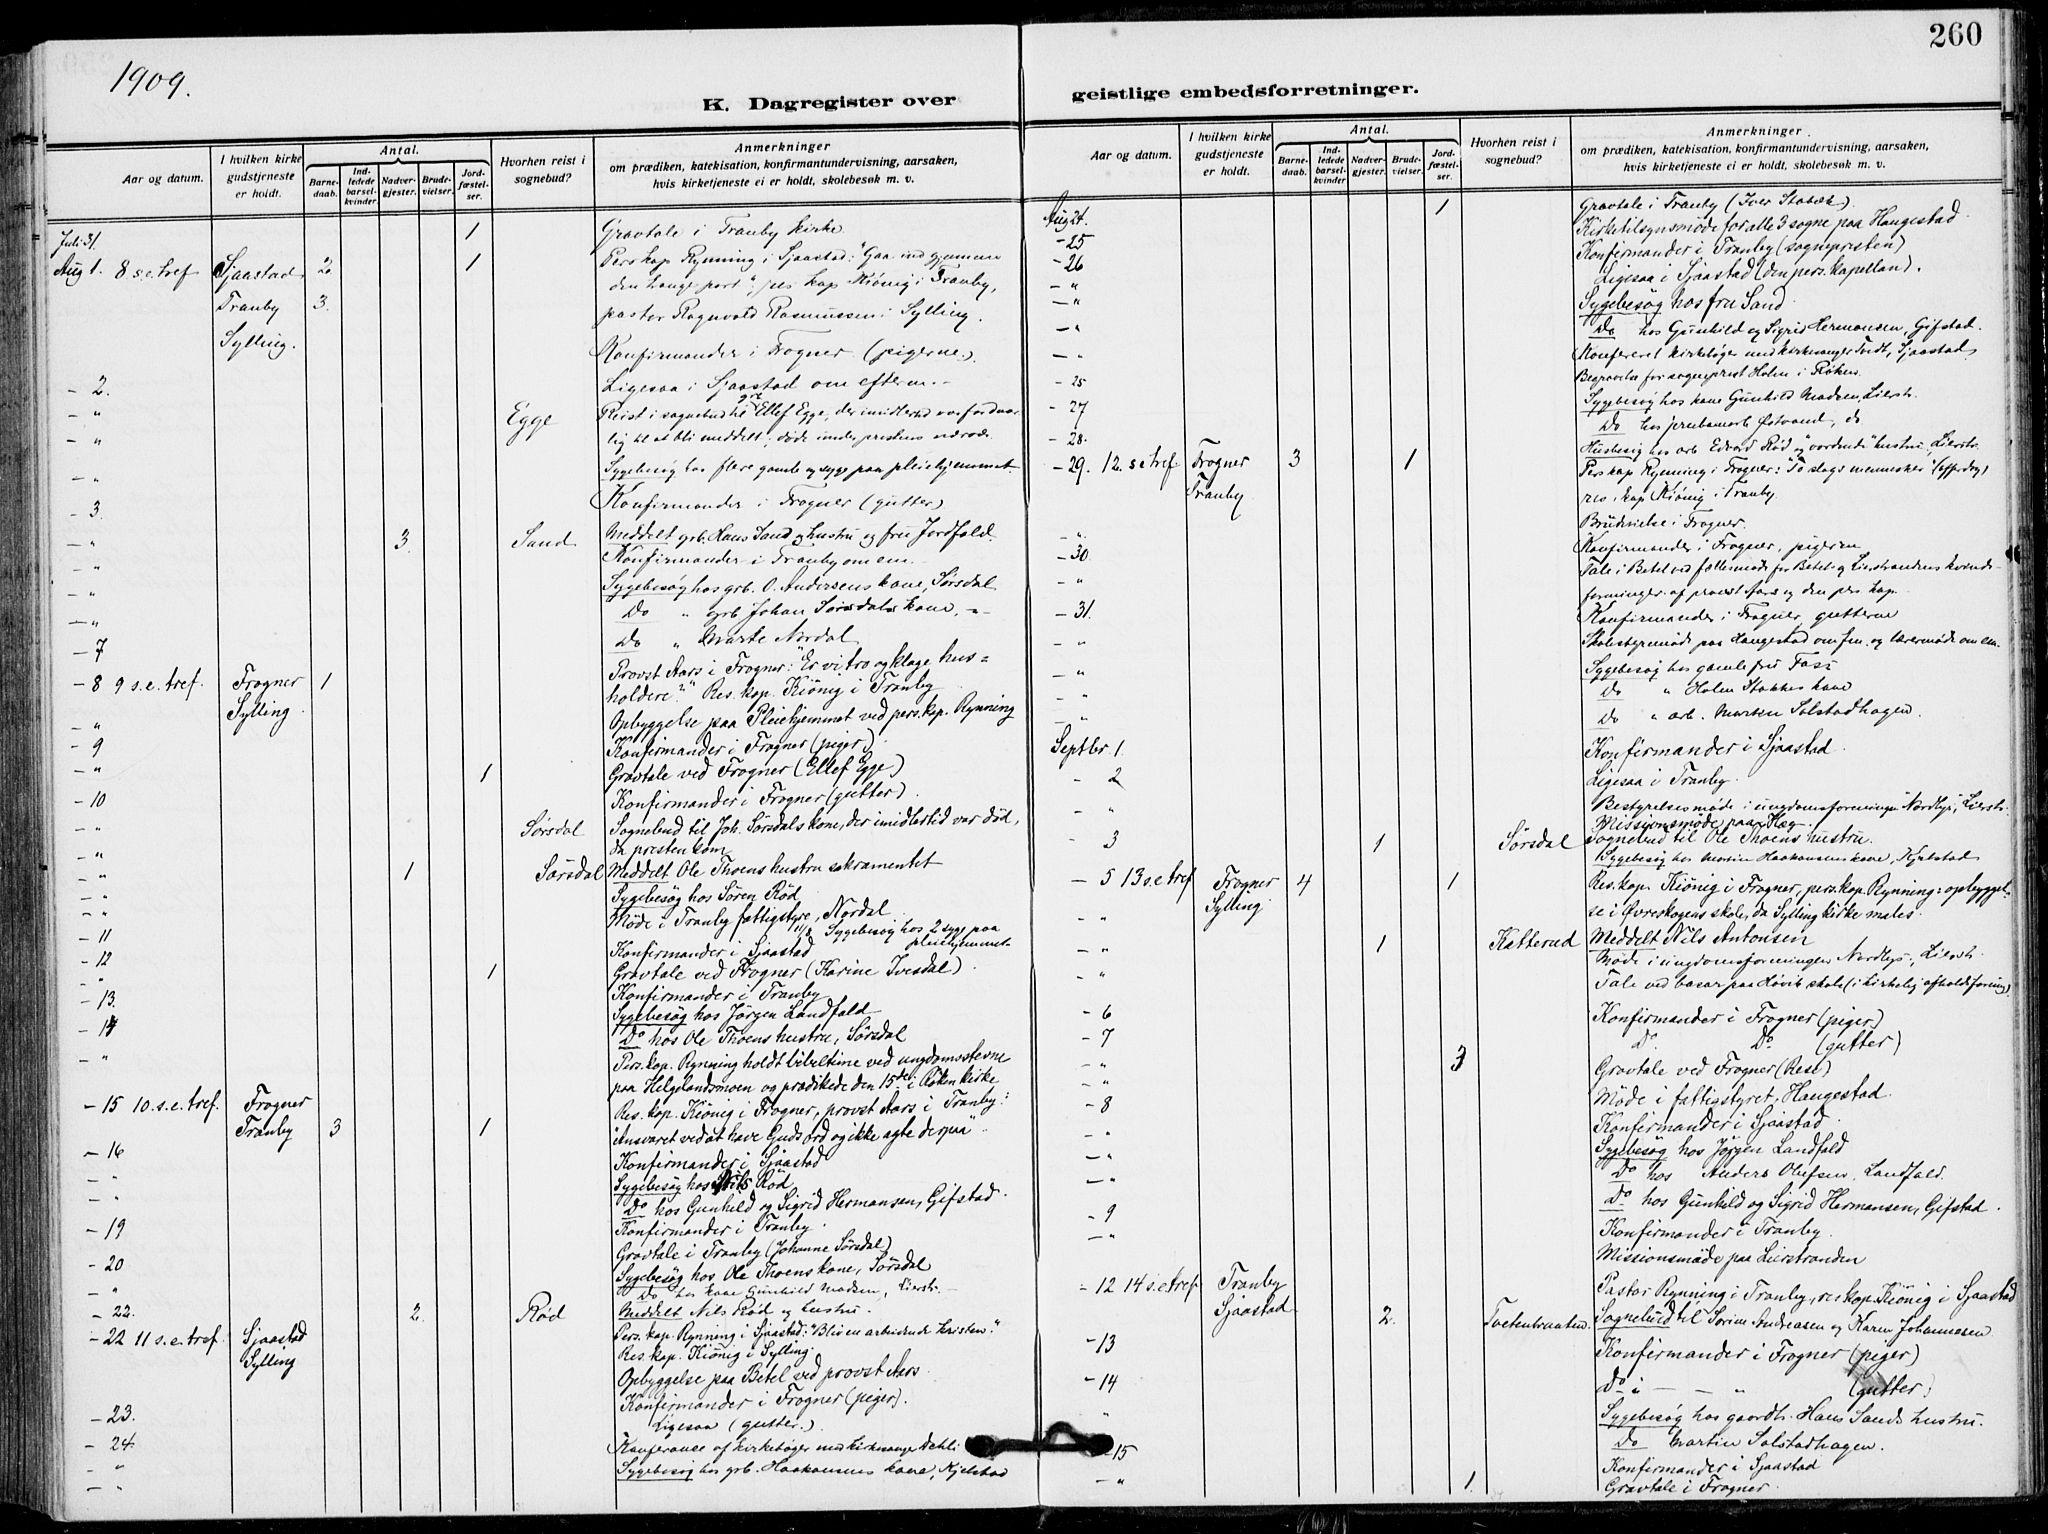 1909.
K. Dagregister over
Aar og datum.
I hvilken kirke gudstjeneste er holdt.
Antal.
Barnedaab.
Indledede barselkvinder.
Nadvergjester.
Brudevielser.
Jordfæstelser.
Hvorhen reist i sognebud?
Anmerkninger
om prædiken, katekisation, konfirmantundervisning, aarsaken,
hvis kirketjeneste ei er holdt, skolebesøk m. v.
Juli 31. 1 Gravtale i Tranby kirke
Aug 1. 8 s.e.tref Sjaastad 2 1 Pers kap Rynning i Sjaastad: "Gaa ind gjennem
Tranby 3. den trange port", res kap Kiönig i Tranby,
Sylling. pastor Ragnvald Rasmussen i Sylling.
Konfirmander i Frogner (pigerne).
- 2. Ligesaa i Sjaastad om efterm. -
- " Egge Reist i sognebud til Ellef Egge, der imidlertid var for daar
- " lig til at bli meddelt, døde under prestens nærvær.
- " Sygebesøg hos flere gamle og syge paa pleiehjemmet.
- 3. Konfirmander i Frogner (gutter)
- " 3. Sand Meddelt grb. Hans Sand og hustru og fru Jordfald.
- " Konfirmander i Tranby om em. -
- " Sygebesøg hos grb. O. Andersens kone, Sørsdal
- " Do " grb Johan Sørsdals kone, -"-
- 7 Do " Marte Nordal
- 8 9 s.e.tref. Frogner 1 Provst Aars i Frogner: "Er vi tro og kloge hus=
Sylling holdere?" Res. kap. Kiönig i Tranby
- " Opbyggelse paa Pleiehjemmet ved pers. kap. Rynning
- 9 Konfirmander i Frogner (piger)
- " 1 Gravtale ved Frogner (Ellef Egge)
- 10 Konfirmander i Frogner (gutter).
- " Sørsdal Sognebud til Joh. Sørsdals kone, der imidlertid var død,
da presten kom
- " 1 Sørsdal Meddelt Ole Thoens hustru sakramentet
- " Sygebesøg hos Søren Rød
- " Møde i Tranby fattigstyre, Nordal
- 11 11/8 Sygebesøg hos 2 syge paa pleiehjemmet
- 12 Konfirmander i Sjaastad
- " 1 Gravtale ved Frogner (Karine Ivesdal)
- 13. Konfirmander i Tranby
- 14 Sygebesøg hos Jørgen Landfald
Do hos Ole Thoens hustru, Sørsdal
- " Pers. kap. Rynning holdt bibeltime ved ungdomsstevne
paa Helgelandsmoen og prædikede den 15de i Røken kirke
- 15 10. s.e.tref. Frogner Res. kap. Kiönig i Frogner, provst Aars i Tranby:
Tranby 3 1 "Ansvaret ved at have Guds ord og ikke agte derpaa".
- 16 Konfirmander i Sjaastad
- " Sygebesøg hos Nils Rød
- " Do hos Gunhild og Sigrid Hermansen, Gifstad.
- 19 Konfirmander i Tranby
Gravtale i Tranby (Johanne Sørsdal)
- 20 Sygebesøg hos Ole Thoens kone, Sørsdal
- " Do hos kone Gunhild Madsen, Lierstr. -
- 22. 2. Rød Meddelt Nils Rød og hustru.
- 22 11 s.e.tref. Sjaastad Pers. kap. Rynning i Sjaastad: "Bli en arbeidende kristen".
Sylling Res. kap. Kiönig i Sylling
Opbyggelse paa Betel ved provst Aars
Konfirmander i Frogner (piger).
- 23. Ligesaa (gutter.)
- 24 Konferance af kirkebøger med kirkesanger Dehli
- " Sygebesøg hos grb. Haakonsens kone, Kjelstad
- "
260
geistlige embedsforretninger.
Aar og datum.
I hvilken kirke gudstjeneste er holdt.
Antal.
Barnedaab.
Indledede barselkvinder.
Nadvergjester.
Brudevielser.
Jordfæstelser.
Hvorhen reist i sognebud?
Anmerkninger
om prædiken, katekisation, konfirmantundervisning, aarsaken,
hvis kirketjeneste ei er holdt, skolebesøk m. v.
Aug 24. 1 Gravtale i Tranby (Iver Stabæk)
- 25 Kirketilsynsmøde for alle 3 sogne paa Haugestad
- 26 Konfirmander i Tranby (sognepresten)
- " Ligesaa i Sjaastad (den pers. kapellan).
- " Sygebesøg hos fru Sand
- " Do hos Gunhild og Sigrid Hermansen, Gifstad.
- " Konfereret kirkebøger med kirkesanger Tvedt, Sjaastad
- 25 Begravelse for sogneprest Holm i Røken
- 27 Sygebesøg hos kone Gunhild Madsen, Lierstr.
- 28. Do hos Østvand, do
Husbesøg hos arb Edvard Rød og hustru, Lierstr.
- 29. 12. s.e.tref. Frogner 3 1 Pers kap Rynning i Frogner: "To slags mennesker"
Tranby res. kap Kiönig i Tranby
Brudevielse i Frogner.
- ". Konfirmander i Frogner, pigerne
- 30 Tale i Betel ved fællesmøde for Betel og Lierstrandens kvinde-
- " foreninger af provst Aars og den pers kap.
- 31. Konfirmander i Frogner, gutterne
- " Skolestyremøde paa Haugestad om fm. og lærermøde om em.
- " Sygebesøg hos gamle fru Foss
- " Do " Holm Stokkes kone
- " Do " arb. Morten Solstadhagen.
Septbr 1. Konfirmander i Sjaastad
- 2 Ligesaa i Tranby.
- " Bestyrelsesmøde i ungdomsforeningen "Nordlys", Lierstr.
Missionsmøde paa Hæg
- 3 1 Sørsdal Sognebud til Ole Thoens hustru.
Sygebesøg hos Martin Haakonsens kone, Kjelstad
- 5 13 s.e.tref Frogner 4 1 Res. kap. Kiönig i Frogner, pers. kap. Rynning: opbyggel-
- " Sylling se i Øvreskogens skole, da Sylling kirke males.
- " 1 Katterud Meddelt Nils Antonsen
Møde i ungdomsforeningen Nordlys, Lierstr.
- " Tale ved basar paa Høvik skole (i kirkelig afholdsforening).
- 6 Konfirmander i Frogner (piger)
- 7 Do. Do (gutter)
- " 3 Gravtale ved Frogner (Rese)
- " Møde i fattigstyret, Haugestad.
- 8 Konfirmander i Sjaastad.
- " Sygebesøg hos Jørgen Landfald
- " Do hos Anders Olufsen, Landfald.
- " Do hos Gunhild og Sigrid Hermansen, Gifstad.
- 9 Konfirmander i Tranby.
- " Missionsmøde paa Lierstranden
- 12 14 s.e.tref Tranby Pastor Rynning i Tranby, res kap. Kiönig i Sjaastad
Sjaastad 2. Tvetenbraaten. Sognebud til Sørine Andreasen og Karen Johannesen
- 13 Konfirmander i Frogner (piger)
- 14 Do i - - " (gutter)
" Sygebesøg hos gaardbr. Hans Sands hustru.
Do Martin Solstadhagen.
- 15 Konfirmander i Sjaastad
- " 1. Gravtale i Frogner